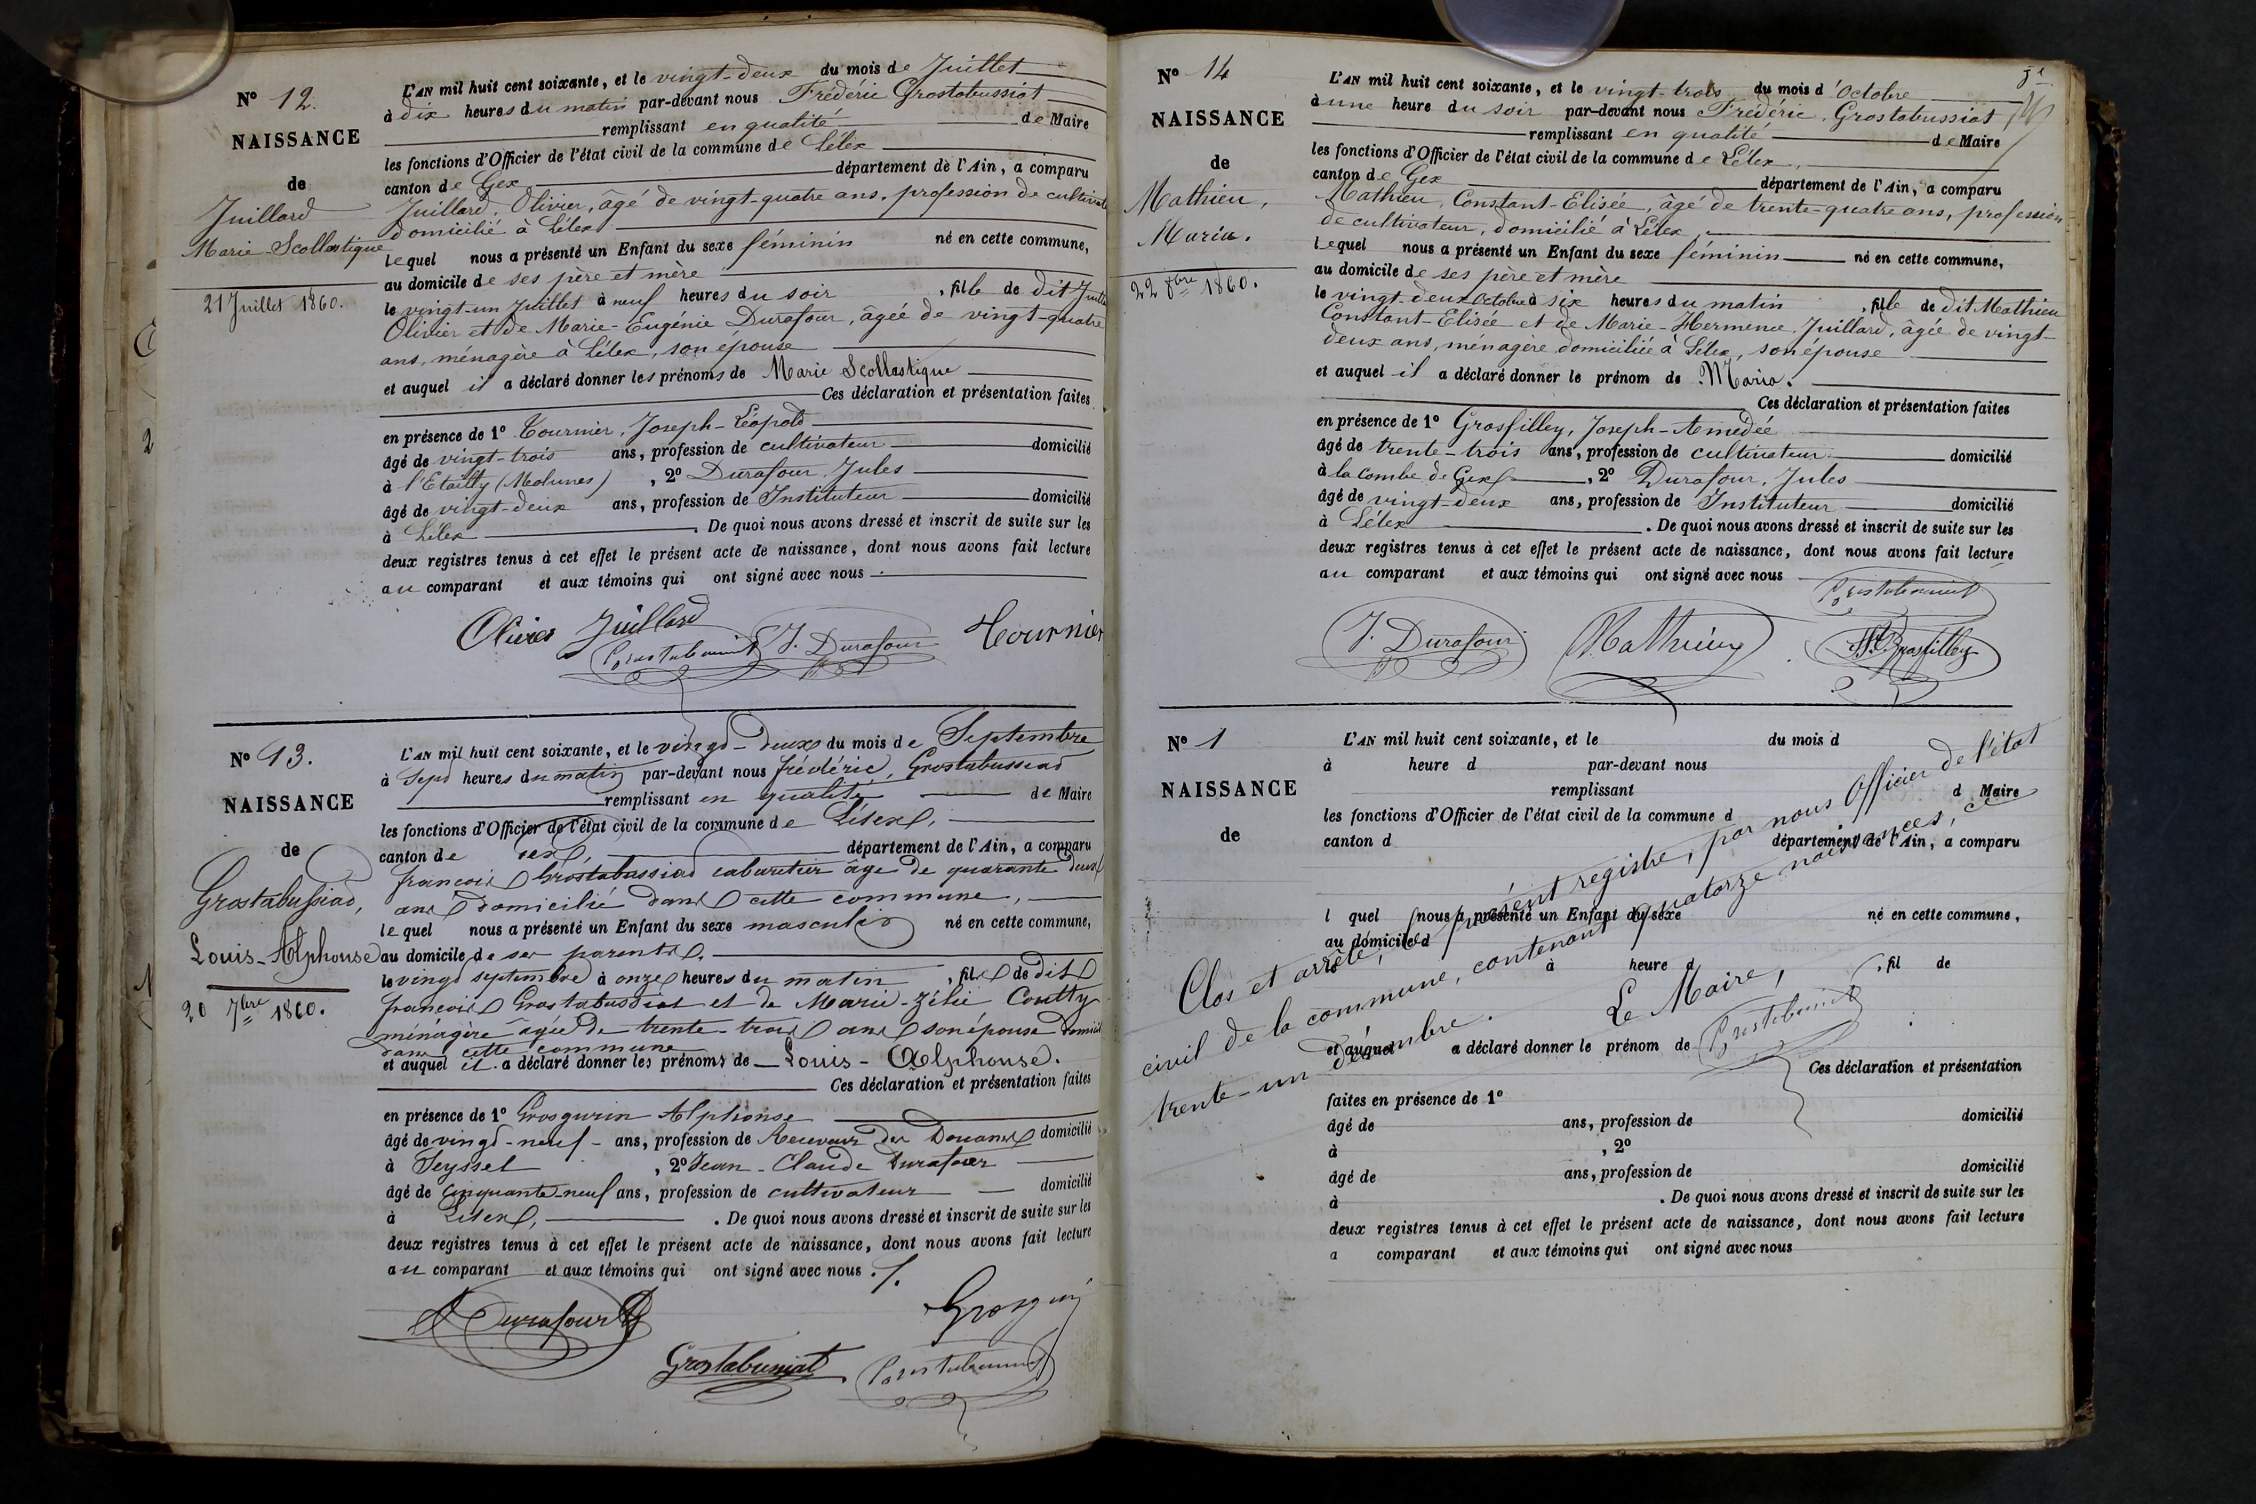 Nº 12.
NAISSANCE
de
Juillard
Marie-Scollastique
21 Juillet 1860.
L'AN mil huit cent soixante, et le vingt-deux du mois de Juillet
à dix heures du matin par-devant nous Frédéric Grostabussiat
remplissant en qualité de Maire
les fonctions d'Officier de l'état civil de la commune de Lélex
canton de Gex département de l'Ain, a comparu
Juillard, Olivier, âgé de vingt-quatre ans, profession de cultivateur
domicilié à Lélex
lequel nous a présenté un Enfant du sexe féminin né en cette commune,
au domicile de ses père et mère
le vingt-un Juillet à neuf heures du soir, fille de dit Juillard
Olivier et de Marie-Eugénie Durafour, âgée de vingt-quatre
ans, ménagère à Lélex, son épouse
et auquel il a déclaré donner les prénoms de Marie Scollastique
Ces déclaration et présentation faites
en présence de 1º Tournier, Joseph-Léopold
âgé de vingt-trois ans, profession de cultivateur domicilié
à l'Etailly (Molunes), 2º Durafour, Jules
âgé de vingt-deux ans, profession de Instituteur domicilié
à Lélex. De quoi nous avons dressé et inscrit de suite sur les
deux registres tenus à cet effet le présent acte de naissance, dont nous avons fait lecture
au comparant et aux témoins qui ont signé avec nous.
Olivier Juillard Grostabussiat J. Durafour Tournier
Nº 13.
NAISSANCE
de
Grostabussiat,
Louis-Alphonse
20 7bre 1860.
L'AN mil huit cent soixante, et le vingt-deux du mois de Septembre
à Sept heures du matin par-devant nous frédéric, Grostabussiat
remplissant en qualité de Maire
les fonctions d'Officier de l'état civil de la commune de Lélex,
canton de Gex, département de l'Ain, a comparu
françois Grostabussiat cabaretier âgé de quarante deux
ans domicilié dans cette commune,
lequel nous a présenté un Enfant du sexe masculin né en cette commune,
au domicile de ses parents,
le vingt septembre à onze heures du matin, fils de dit
françois Grostabussiat et de Marie-Zélie Coutty
ménagère âgée de trente-trois ans son épouse domicil
dans cette commune
et auquel il a déclaré donner les prénoms de Louis-Alphonse.
Ces déclaration et présentation faites
en présence de 1º Grosgurin Alphonse
âgé de vingt-neuf ans, profession de Receveur des Douanes domicilié
à Seyssel, 2º Jean-Claude Durafour
âgé de cinquante-neuf ans, profession de cultivateur domicilié
à Lélex,. De quoi nous avons dressé et inscrit de suite sur les
deux registres tenus à cet effet le présent acte de naissance, dont nous avons fait lecture
au comparant et aux témoins qui ont signé avec nous./.
Durafour
Grostabussiat Grostabussiat
Nº 14
NAISSANCE
de
Mathieu,
Maria.
22 8bre 1860.
L'AN mil huit cent soixante, et le vingt-trois du mois d'Octobre
à une heure du soir par-devant nous Frédéric, Grostabussiat
remplissant en qualité de Maire
les fonctions d'Officier de l'état civil de la commune de Lélex,
canton de Gex département de l'Ain, a comparu
Mathieu, Constant-Elisée, âgé de trente-quatre ans, profession
de cultivateur, domicilié à Lélex,
lequel nous a présenté un Enfant du sexe féminin né en cette commune,
au domicile de ses père et mère
le vingt-deux octobre à six heures du matin, fille de dit Mathieu
Constant-Elisée et de Marie-Hermence Juillard, âgée de vingt-
deux ans, ménagère domiciliée à Lélex, son épouse
et auquel il a déclaré donner le prénom de Maria.
Ces déclaration et présentation faites
en présence de 1º Grosfilley, Joseph-Amédée
âgé de trente-trois ans, profession de cultivateur domicilié
à la Combe de Gex, 2º Durafour, Jules
âgé de vingt-deux ans, profession de Instituteur domicilié
à Lélex. De quoi nous avons dressé et inscrit de suite sur les
deux registres tenus à cet effet le présent acte de naissance, dont nous avons fait lecture
au comparant et aux témoins qui ont signé avec nous
Grostabussiat
J. Durafour Mathieu Grosfilley
Nº 1
NAISSANCE
de
L'AN mil huit cent soixante, et le du mois d
à heure d par-devant nous
remplissant d Maire
les fonctions d'Officier de l'état civil de la commune d
canton d département de l'Ain, a comparu
l quel nous a présenté un Enfant du sexe né en cette commune,
au domicile d
le à heure d, fil de
et auquel a déclaré donner le prénom de
Ces déclaration et présentation
faites en présence de 1º
âgé de ans, profession de domicilié
à, 2º
âgé de ans, profession de domicilié
à. De quoi nous avons dressé et inscrit de suite sur les
deux registres tenus à cet effet le présent acte de naissance, dont nous avons fait lecture
a comparant et aux témoins qui ont signé avec nous
Clos et arrêté, le présent registre, par nous Officier de l'état
civil de la commune, contenant quatorze naissances, ce
trente-un décembre.
Le Maire,
Grostabussiat